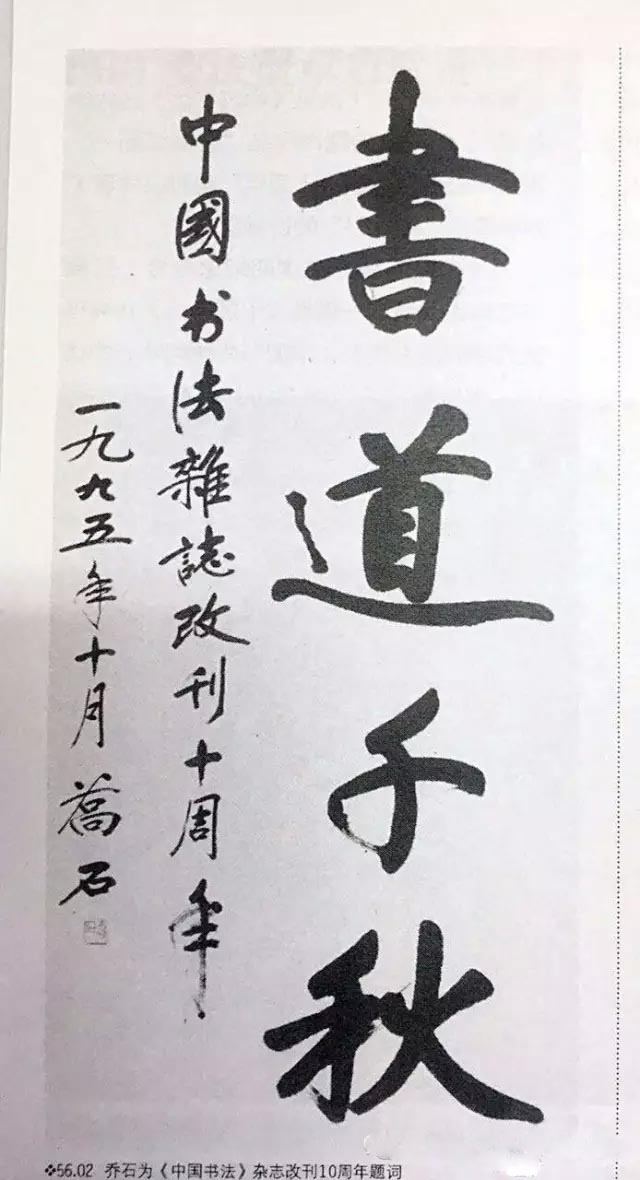 書道千秋
中國书法雜誌改刊十周年
一九九五年十月 喬石
❖56.02 乔石为《中国书法》杂志改刊10周年题词